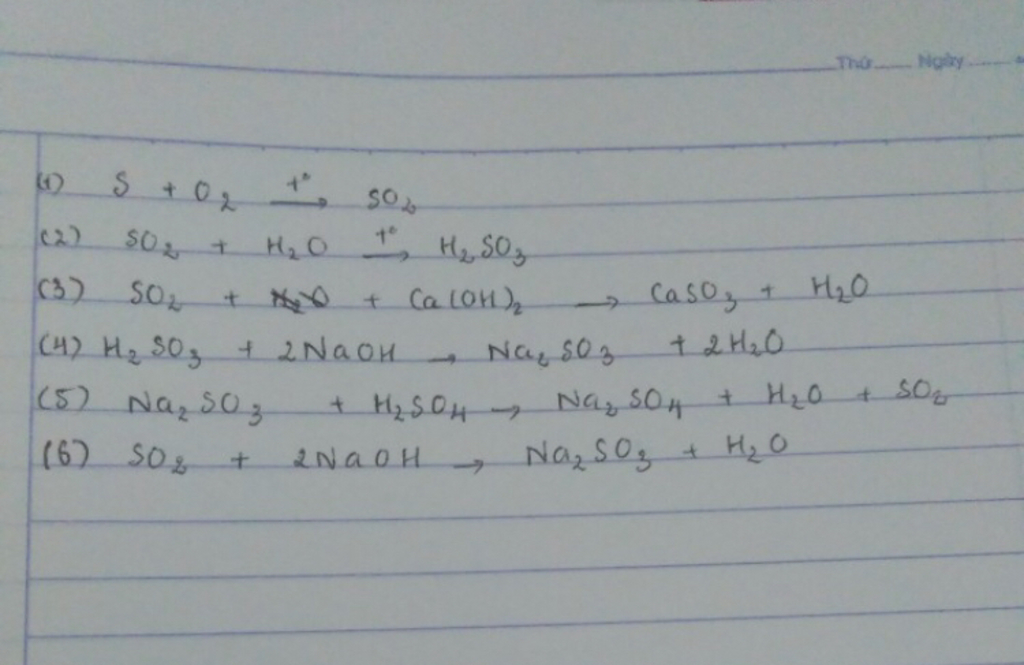 Thứ ...... Ngày ......
(1) S + O₂ —t°→ SO₂
(2) SO₂ + H₂O —t°→ H₂SO₃
(3) SO₂ + + Ca(OH)₂ → CaSO₃ + H₂O
(4) H₂SO₃ + 2NaOH → Na₂SO₃ + 2H₂O
(5) Na₂SO₃ + H₂SO₄ → Na₂SO₄ + H₂O + SO₂
(6) SO₂ + 2NaOH → Na₂SO₃ + H₂O